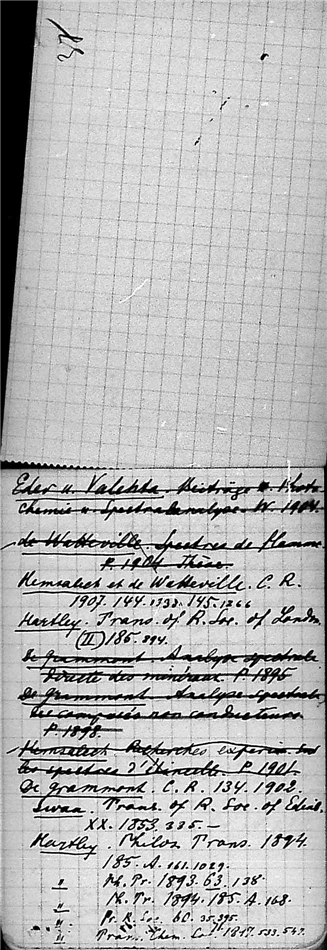 Eder u. Valenta. Beiträge z. Photo-
chemie u. Spectralanalyse. W. 1904.
de Watteville. Spectres de flamme
P. 1904 Thèse.
Hemsalech et de Watteville. C. R.
1907. 144. 1338. 145. 1266
Hartley. Trans. of R. Soc. of London
(II) 185.
De grammont. Analyse spectrale
directe des minéraux. P 1895
De grammont. Analyse spectrale
des composés non conducteurs.
P. 1898
Hemsalech Recherches experim. sur
les spectres d'étincelle. P 1901.
De grammont. C. R. 134. 1902.
Swan. Trans. of R. Soc. of Edinb.
XX. 1853. 335. —
Hartley. Philos Trans. 1894.
185. A. 161. 1029.
" Ph. Tr. 1893. 63. 138
" Ph. Tr. 1894. 185. A. 168.
" Pr. R. Soc. 60. 35. 395.
" Tran. Chem. 533. 547.